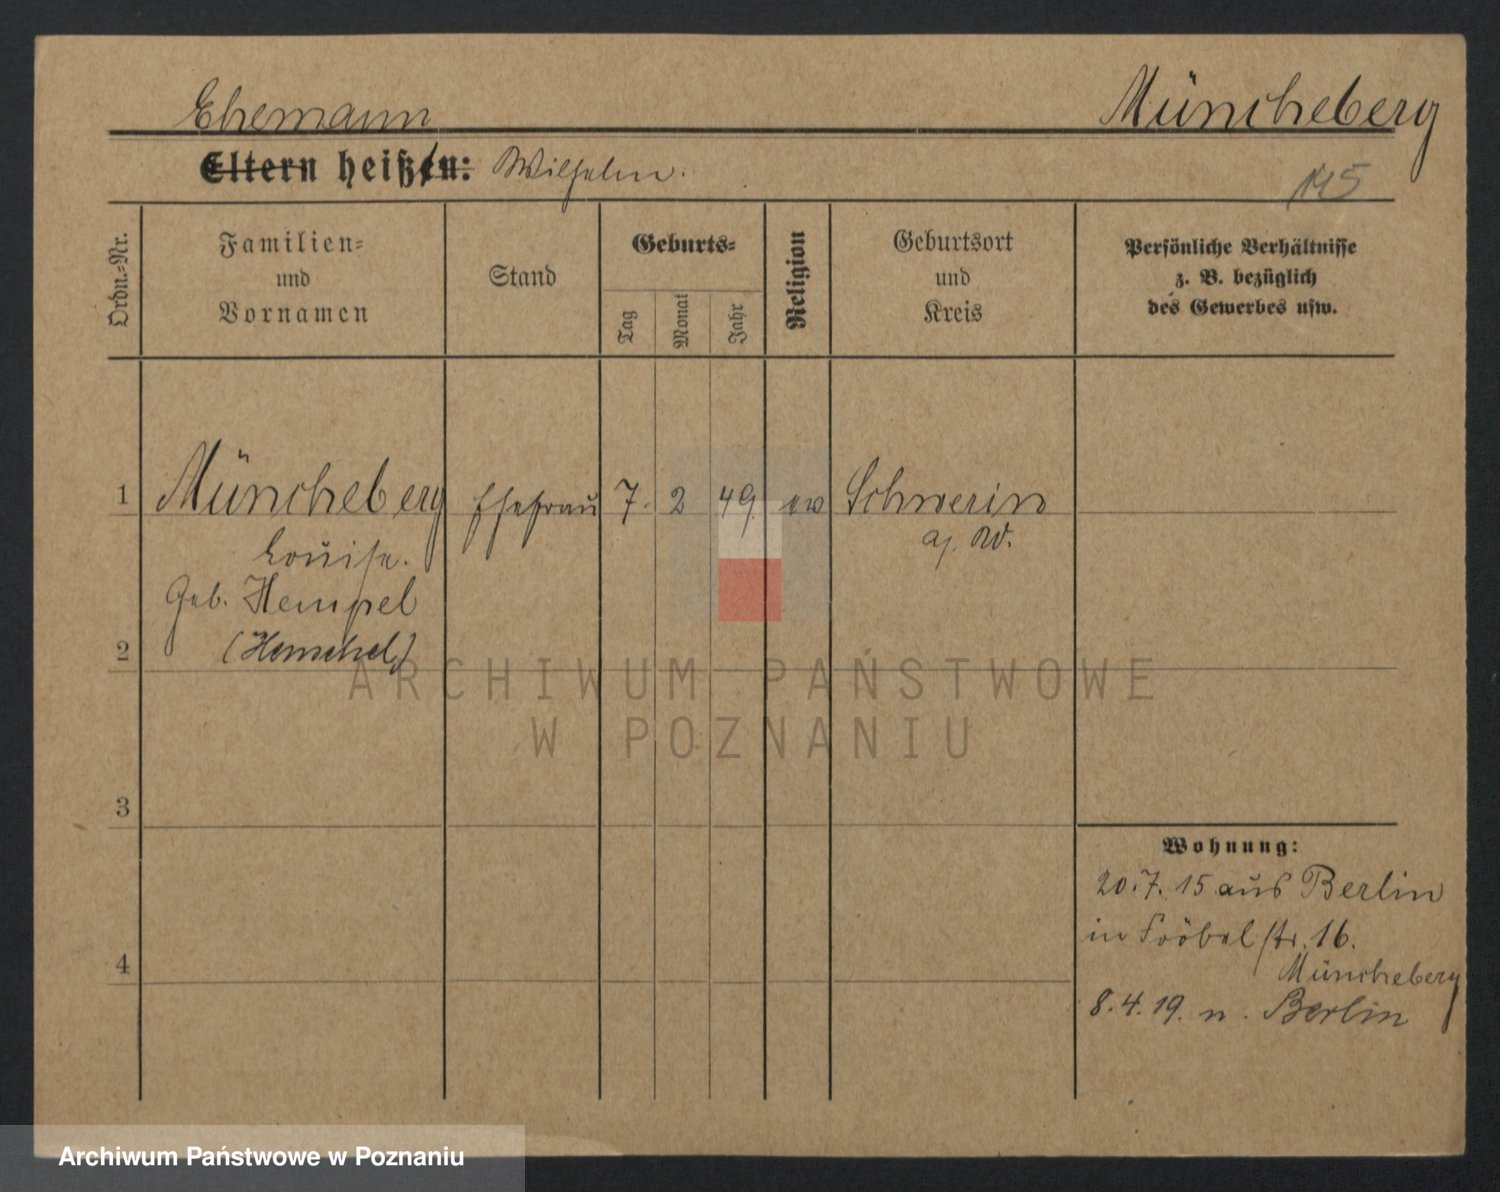 Ehemann
Müncheberg
Eltern heißen: Wilhelm.
145
Ordn.-Nr.
Familien-
und
Vornamen
Stand
Geburts-
Tag
Monat
Jahr
Religion
Geburtsort
und
Kreis
Persönliche Verhältnisse
z. B. bezüglich
des Gewerbes usw.
1 Müncheberg Ehefrau 7. 2 49. ew Schwerin
Louise. a. W.
Geb. Hempel
2 (Henschel)
ARCHIWUM PAŃSTWOWE
W POZNANIU
3
Wohnung:
20.7.15 aus Berlin
in Fröbelstr. 16.
4
Müncheberg
8.4.19. n. Berlin
Archiwum Państwowe w Poznaniu